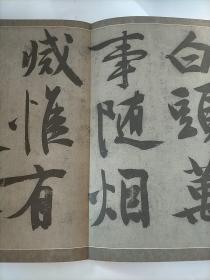 白頭萬
事随烟
滅惟有